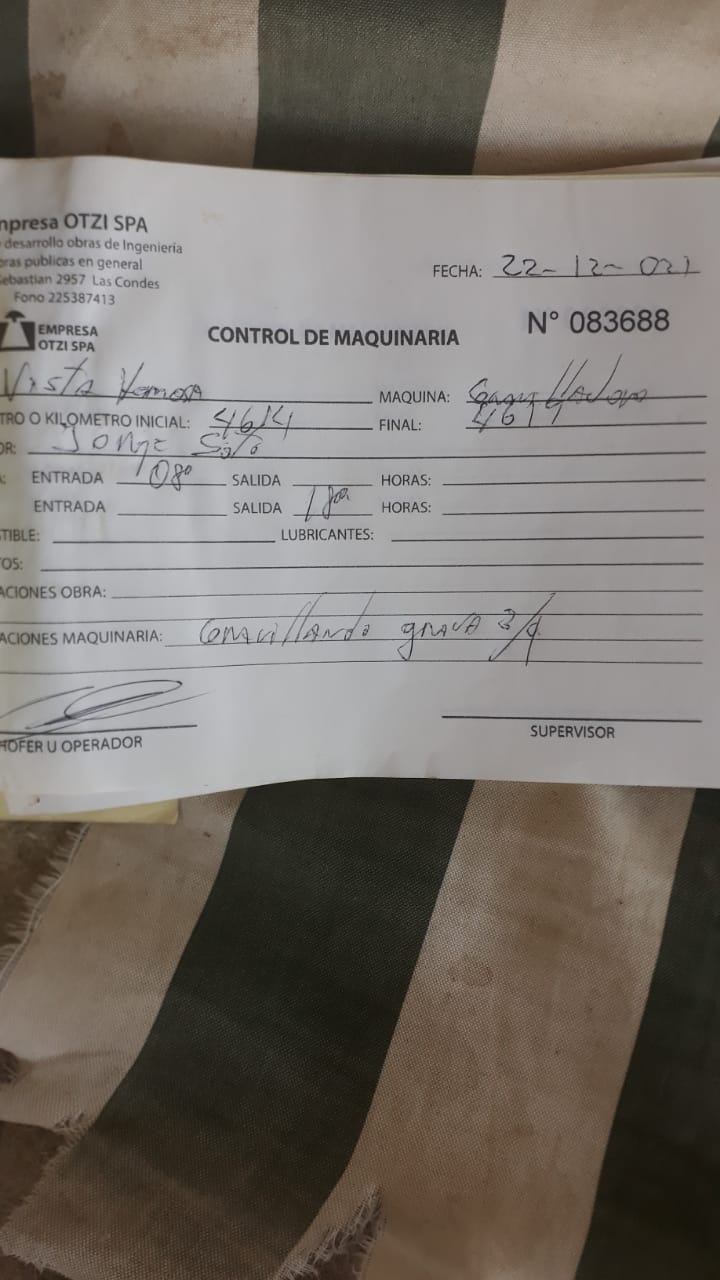 mpresa OTZI SPA
desarrollo obras de Ingenieria
oras publicas en general
Sebastian 2957 Las Condes
Fono 225387413
FECHA: 22-12-021
EMPRESA
OTZI SPA
CONTROL DE MAQUINARIA
N° 083688
Vista Hermosa
MAQUINA: Gravilladora
TRO O KILOMETRO INICIAL: 4614
FINAL:
OR: Jorge Soto
A: ENTRADA 08° SALIDA HORAS:
ENTRADA SALIDA 1800 HORAS:
STIBLE: LUBRICANTES:
TOS:
ACIONES OBRA:
ACIONES MAQUINARIA: Gravillando grava 3/4
HOFER U OPERADOR
SUPERVISOR